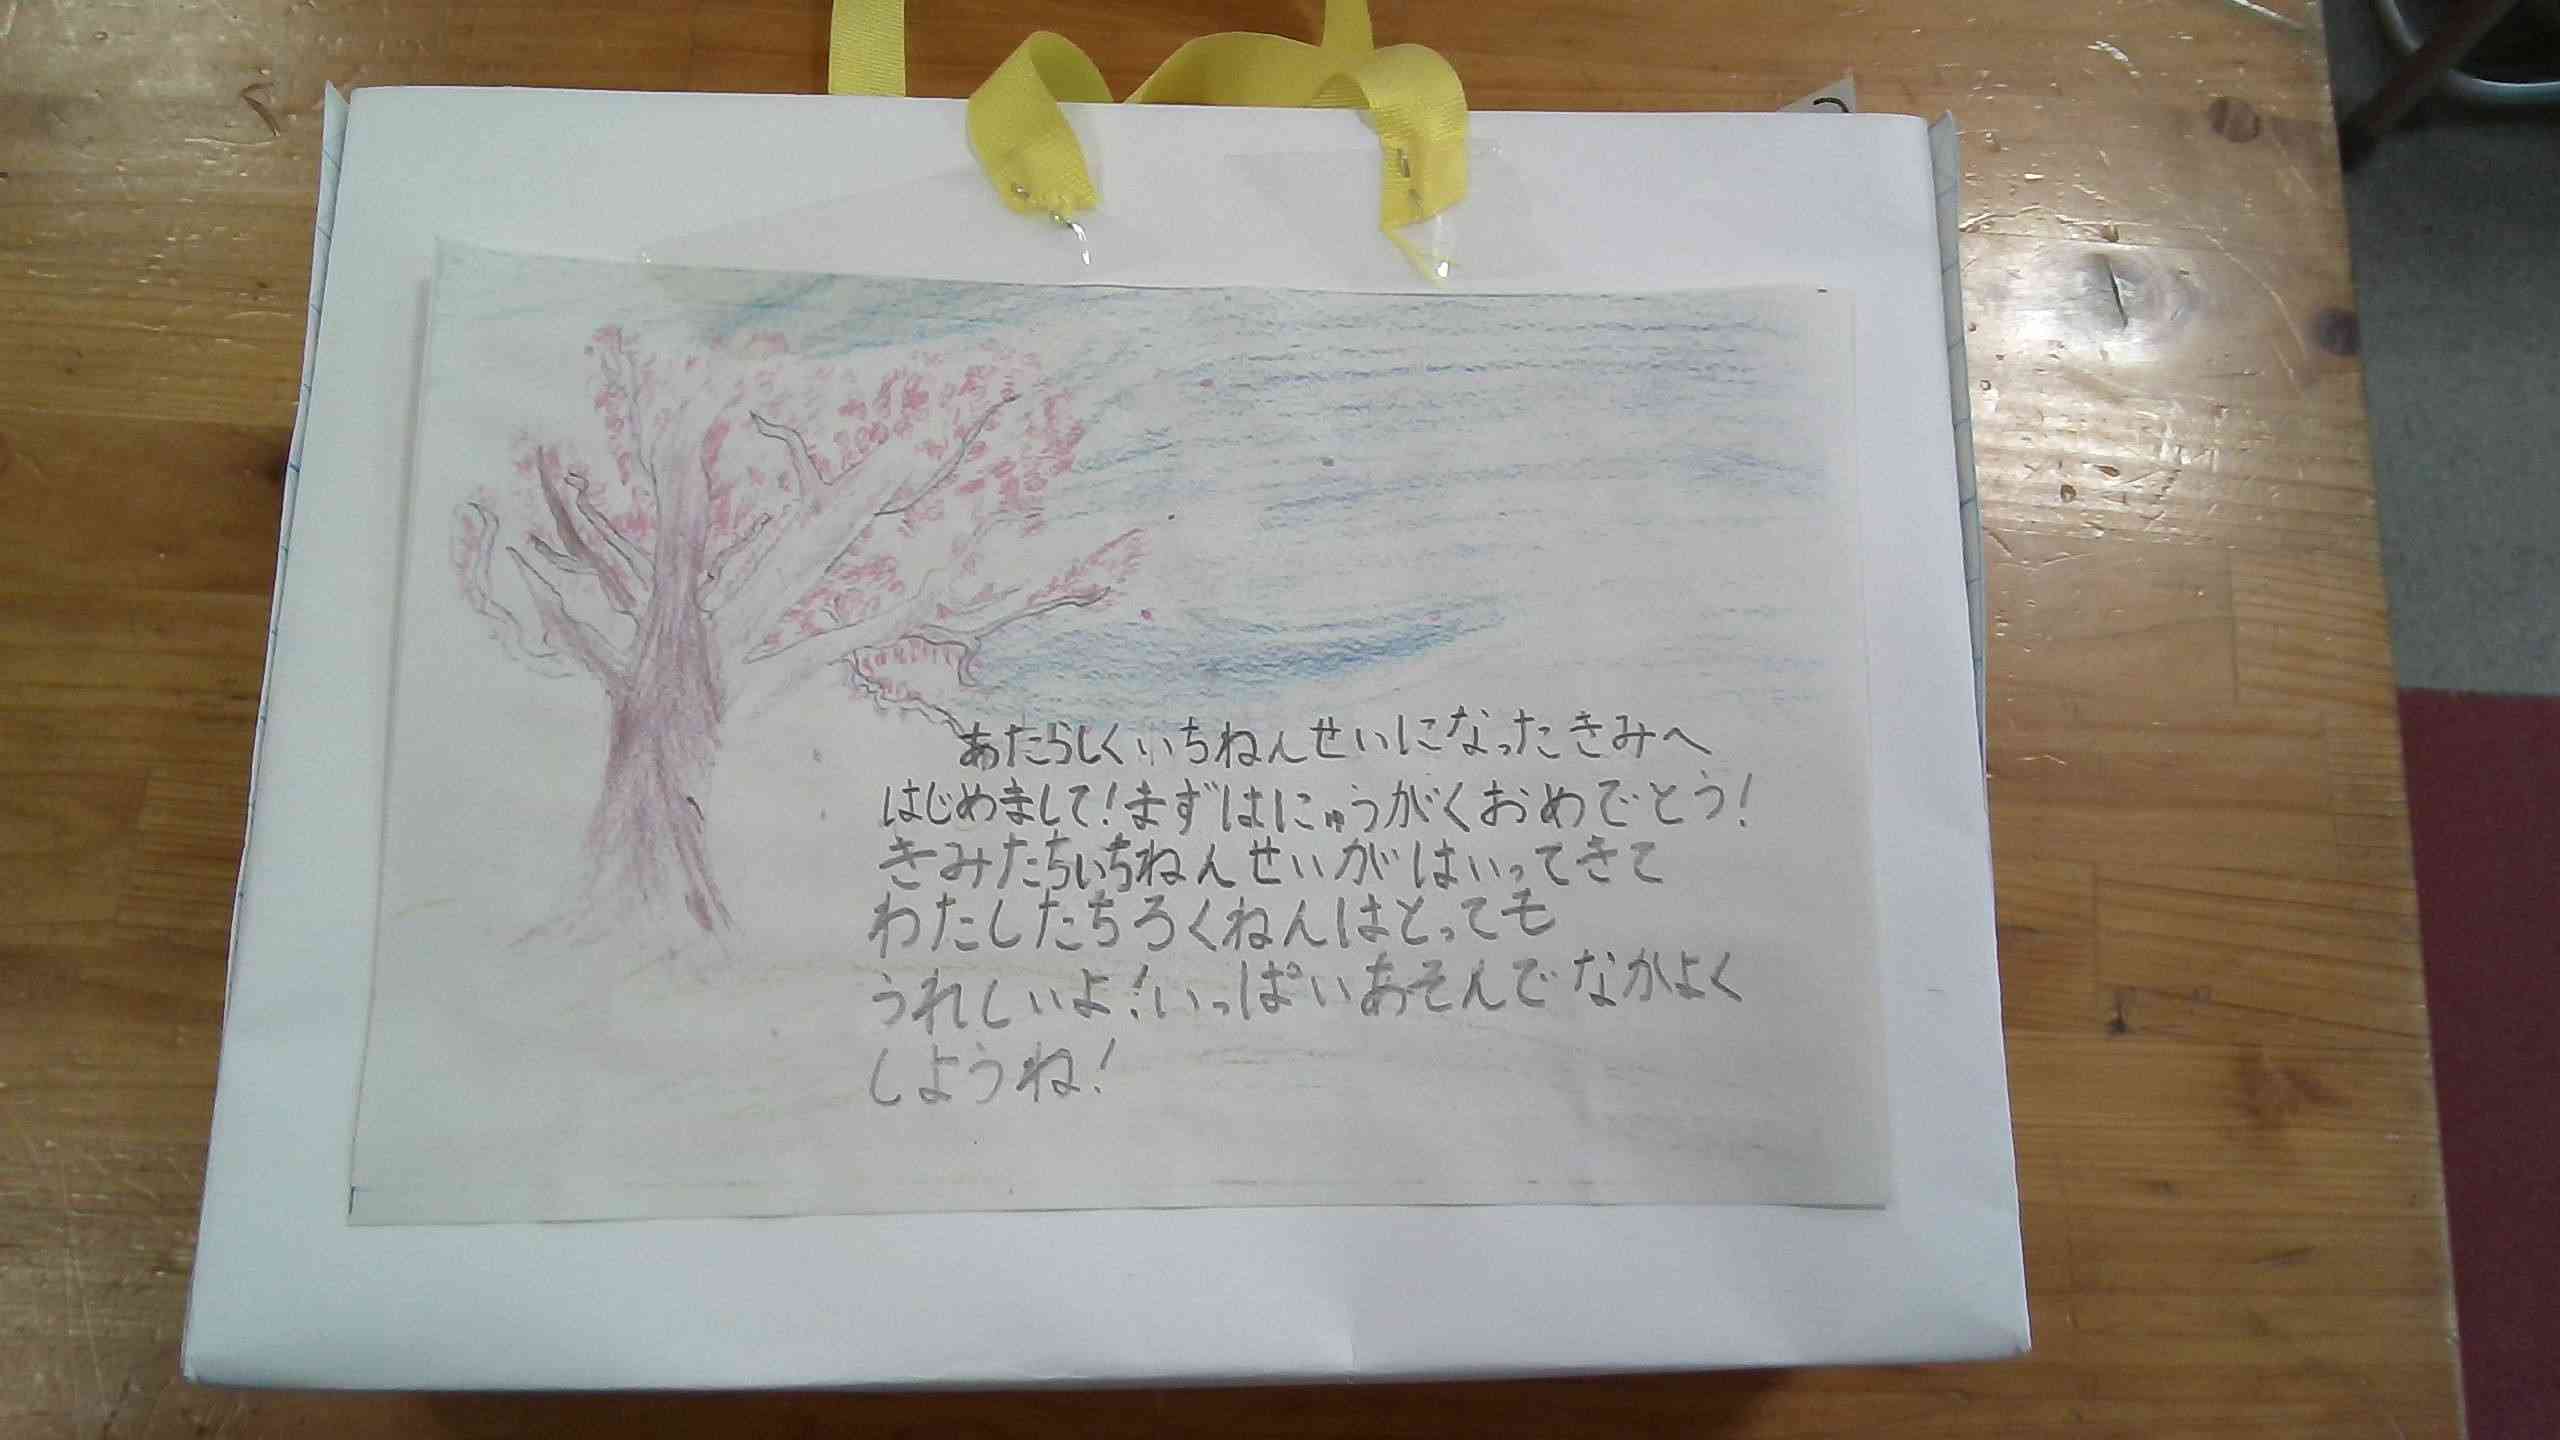 あたらしくいちねんせいになったきみへ
はじめまして!まずはにゅうがくおめでとう!
きみたちいちねんせいがはいってきて
わたしたちろくねんはとっても
うれしいよ!いっぱいあそんでなかよく
しようね!